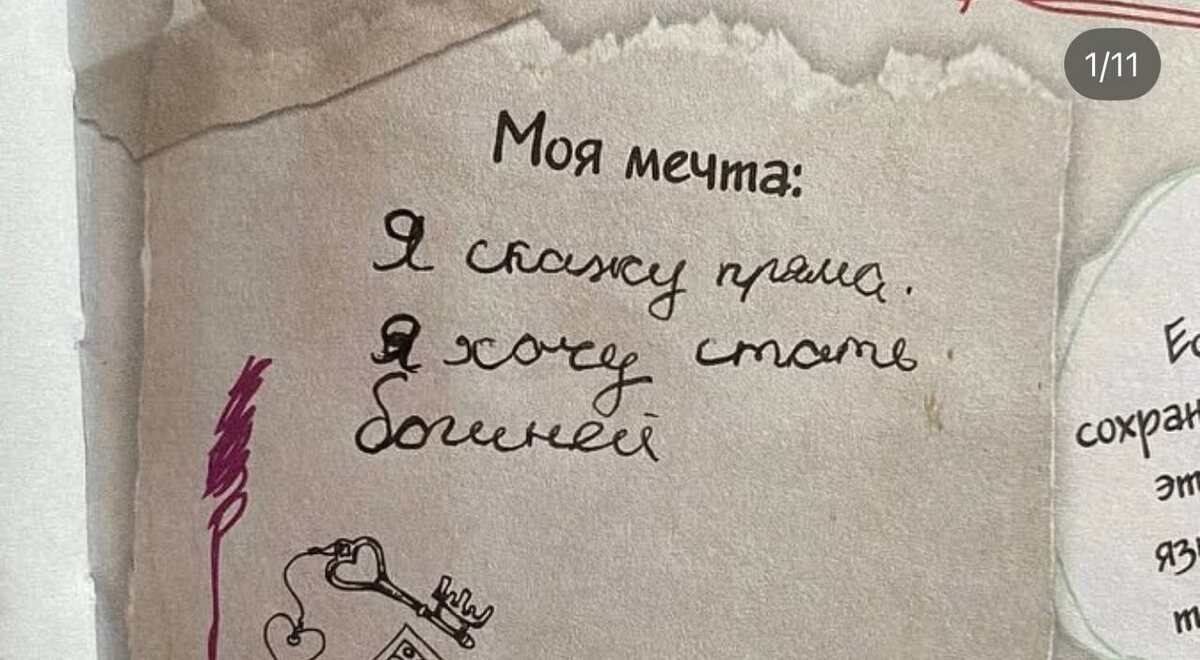 1/11
Моя мечта:
Я скажу пряма.
Я хочу стать
богиней
Ес
сохран
эт
язы
т